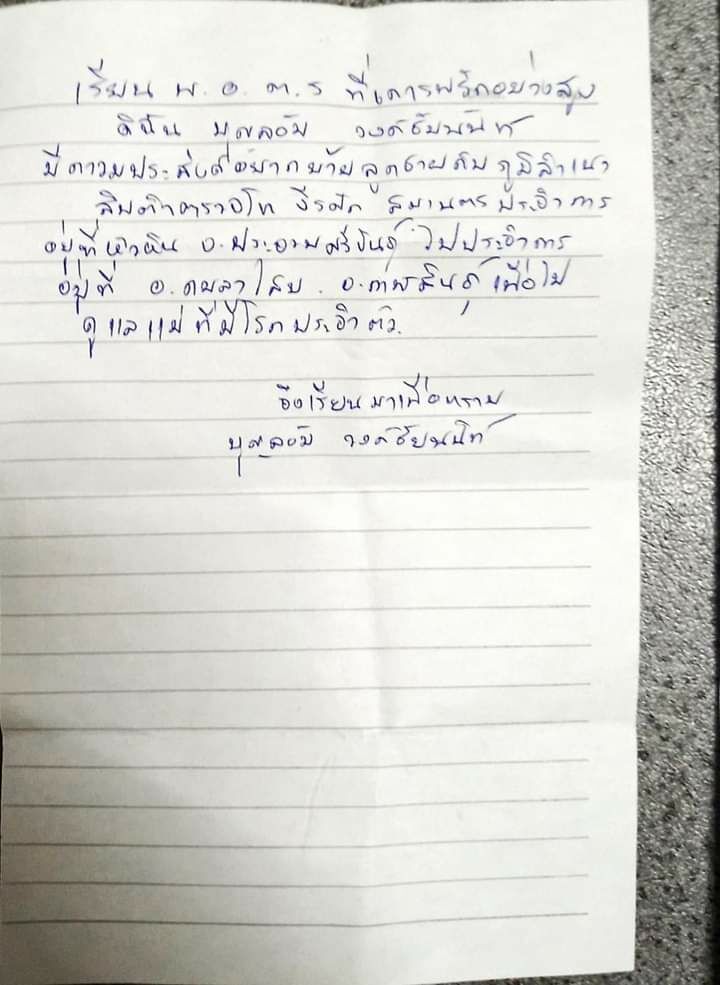 เรียน พ.อ.ต.ร ที่เคารพรักอย่างสูง
ดิฉัน บุญลอัม วงค์ชัยนนท์
มีความประสงค์อยากย้ายลูกชายคืนภูมิลำเนา
สิบตำตรวจโท ธีรศัก สมานตร ประจำการ
อยู่ที่หัวหิน จ.ประจวบคีรีขันธ์ ไปประจำการ
อยู่ที่ อ.กมลาไสย จ.กาฬสินธุ์ เพื่อไป
ดูแลแม่ที่มีโรคประจำตัว.
จึงเรียนมาเพื่อทราบ
วงค์ชัยนนท์